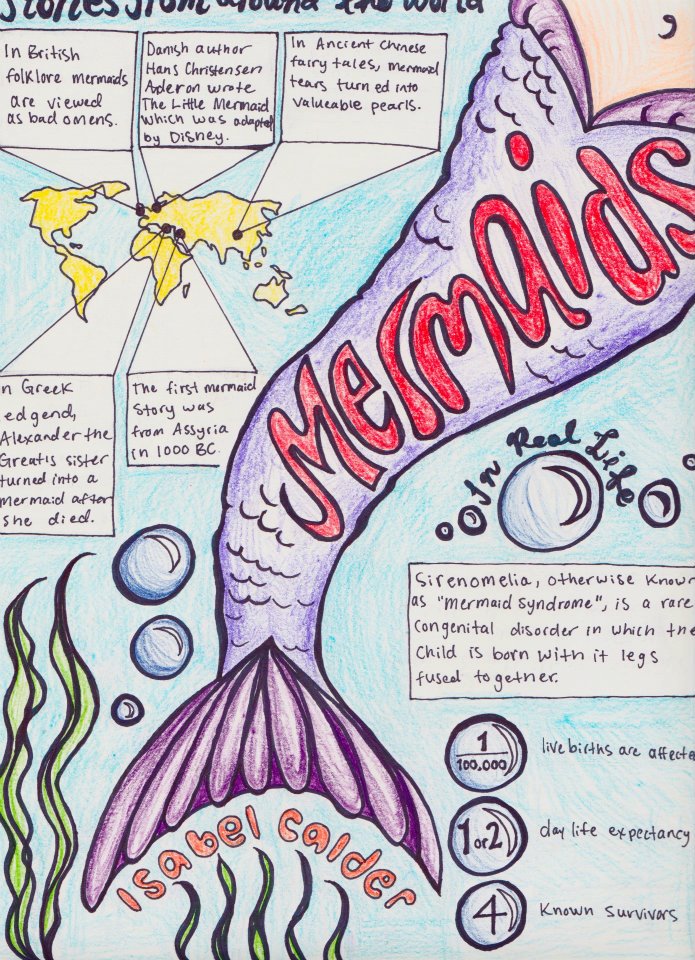 Stories from around the world
In British
folklore mermaids
are viewed
as bad omens.
Danish author
Hans Christensen
Aderson wrote
The Little Mermaid
which was adapted
by Disney.
In Ancient Chinese
fairy tales, mermaid
tears turned into
valueable pearls.
n Greek
edgend,
Alexander the
Great's sister
turned into a
mermaid after
she died.
The first mermaid
story was
from Assyria
in 1000 BC.
Mermaids
In Real Life
Sirenomelia, otherwise known
as "mermaid syndrome", is a rare
congenital disorder in which the
child is born with it legs
fused together.
1
100,000
live births are affecte
1 or 2
day life expectancy
4
known survivors
Isabel Calder